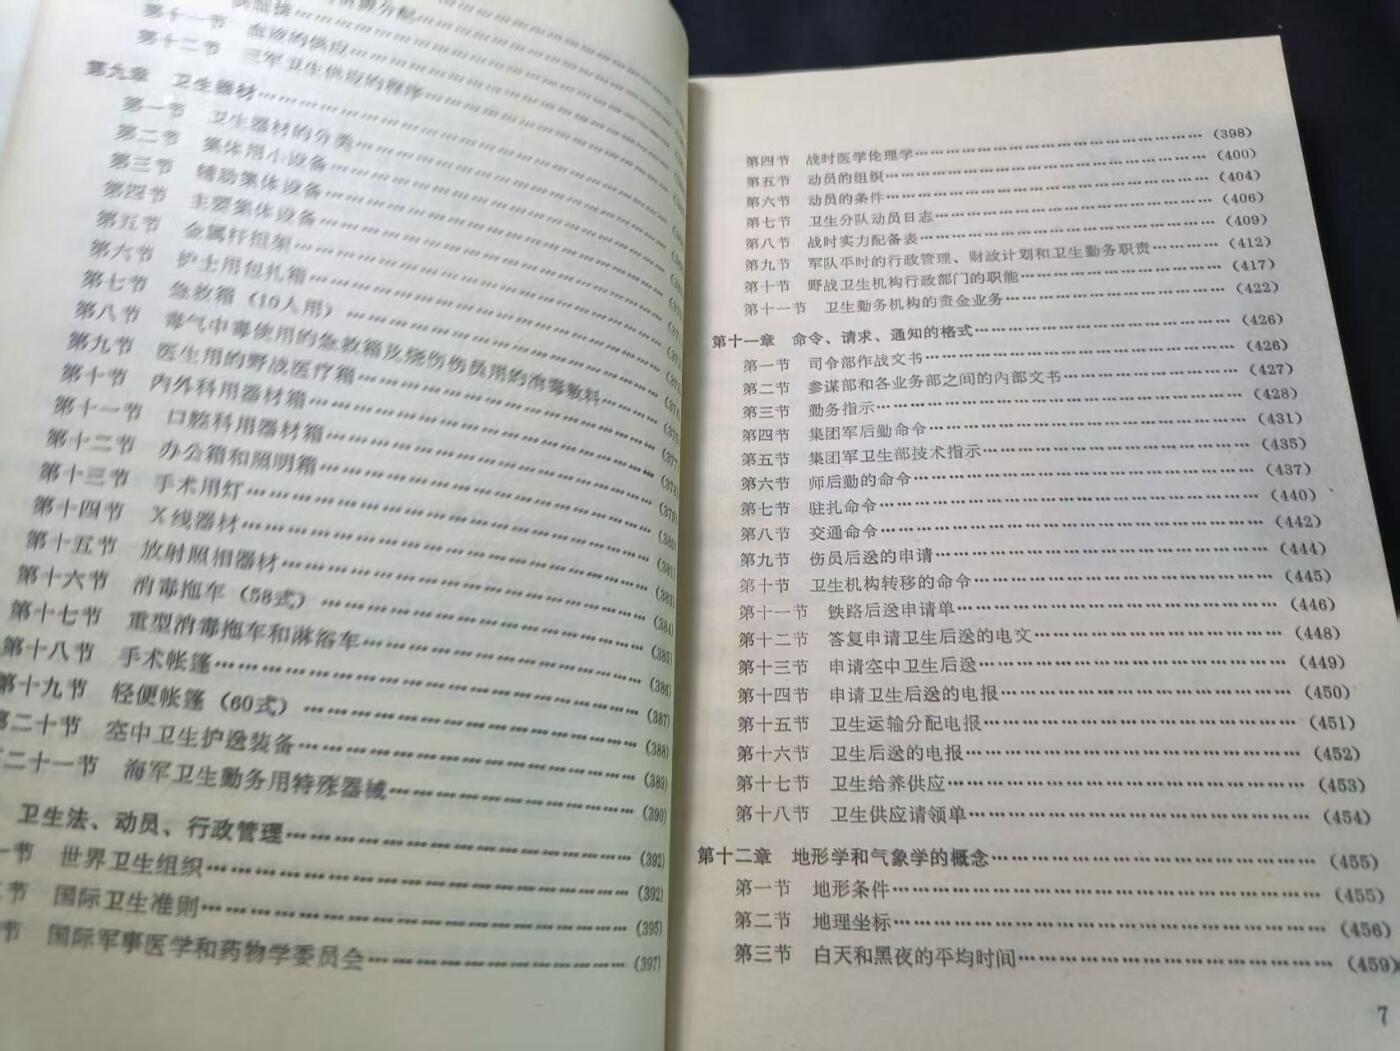 第十一节 血液的供应………
第十二节 三军卫生供应的程序………
第九章 卫生器材………
第一节 卫生器材的分类………
第二节 集体用小设备………
第三节 辅助集体设备………
第四节 主要集体设备………
第五节 金属杆担架………
第六节 护士用包扎箱………
第七节 急救箱（10人用）………
第八节 毒气中毒使用的急救箱及烧伤伤员用的消毒敷料………
第九节 医生用的野战医疗箱………
第十节 内外科用器材箱………
第十一节 口腔科用器材箱………(377)
第十二节 办公箱和照明箱………(378)
第十三节 手术用灯………(379)
第十四节 X线器材………(380)
第十五节 放射照相器材………(381)
第十六节 消毒拖车（58式）………(383)
第十七节 重型消毒拖车和淋浴车………(384)
第十八节 手术帐篷………(385)
第十九节 轻便帐篷（60式）………(386)
二十节 空中卫生护送装备………(387)
二十一节 海军卫生勤务用特殊器械………(390)
卫生法、动员、行政管理………(392)
一节 世界卫生组织………(392)
节 国际卫生准则………(395)
节 国际军事医学和药物学委员会………(397)
第四节 战时医学伦理学………(398)
第五节 动员的组织………(400)
第六节 动员的条件………(404)
第七节 卫生分队动员日志………(406)
第八节 战时实力配备表………(409)
第九节 军队平时的行政管理、财政计划和卫生勤务职责………(412)
第十节 野战卫生机构行政部门的职能………(417)
第十一节 卫生勤务机构的资金业务………(422)
第十一章 命令、请求、通知的格式………(426)
第一节 司令部作战文书………(426)
第二节 参谋部和各业务部之间的内部文书………(427)
第三节 勤务指示………(428)
第四节 集团军后勤命令………(431)
第五节 集团军卫生部技术指示………(435)
第六节 师后勤的命令………(437)
第七节 驻扎命令………(440)
第八节 交通命令………(442)
第九节 伤员后送的申请………(444)
第十节 卫生机构转移的命令………(445)
第十一节 铁路后送申请单………(446)
第十二节 答复申请卫生后送的电文………(448)
第十三节 申请空中卫生后送………(449)
第十四节 申请卫生后送的电报………(450)
第十五节 卫生运输分配电报………(451)
第十六节 卫生后送的电报………(452)
第十七节 卫生给养供应………(453)
第十八节 卫生供应请领单………(454)
第十二章 地形学和气象学的概念………(455)
第一节 地形条件………(455)
第二节 地理坐标………(456)
第三节 白天和黑夜的平均时间………(459)
7